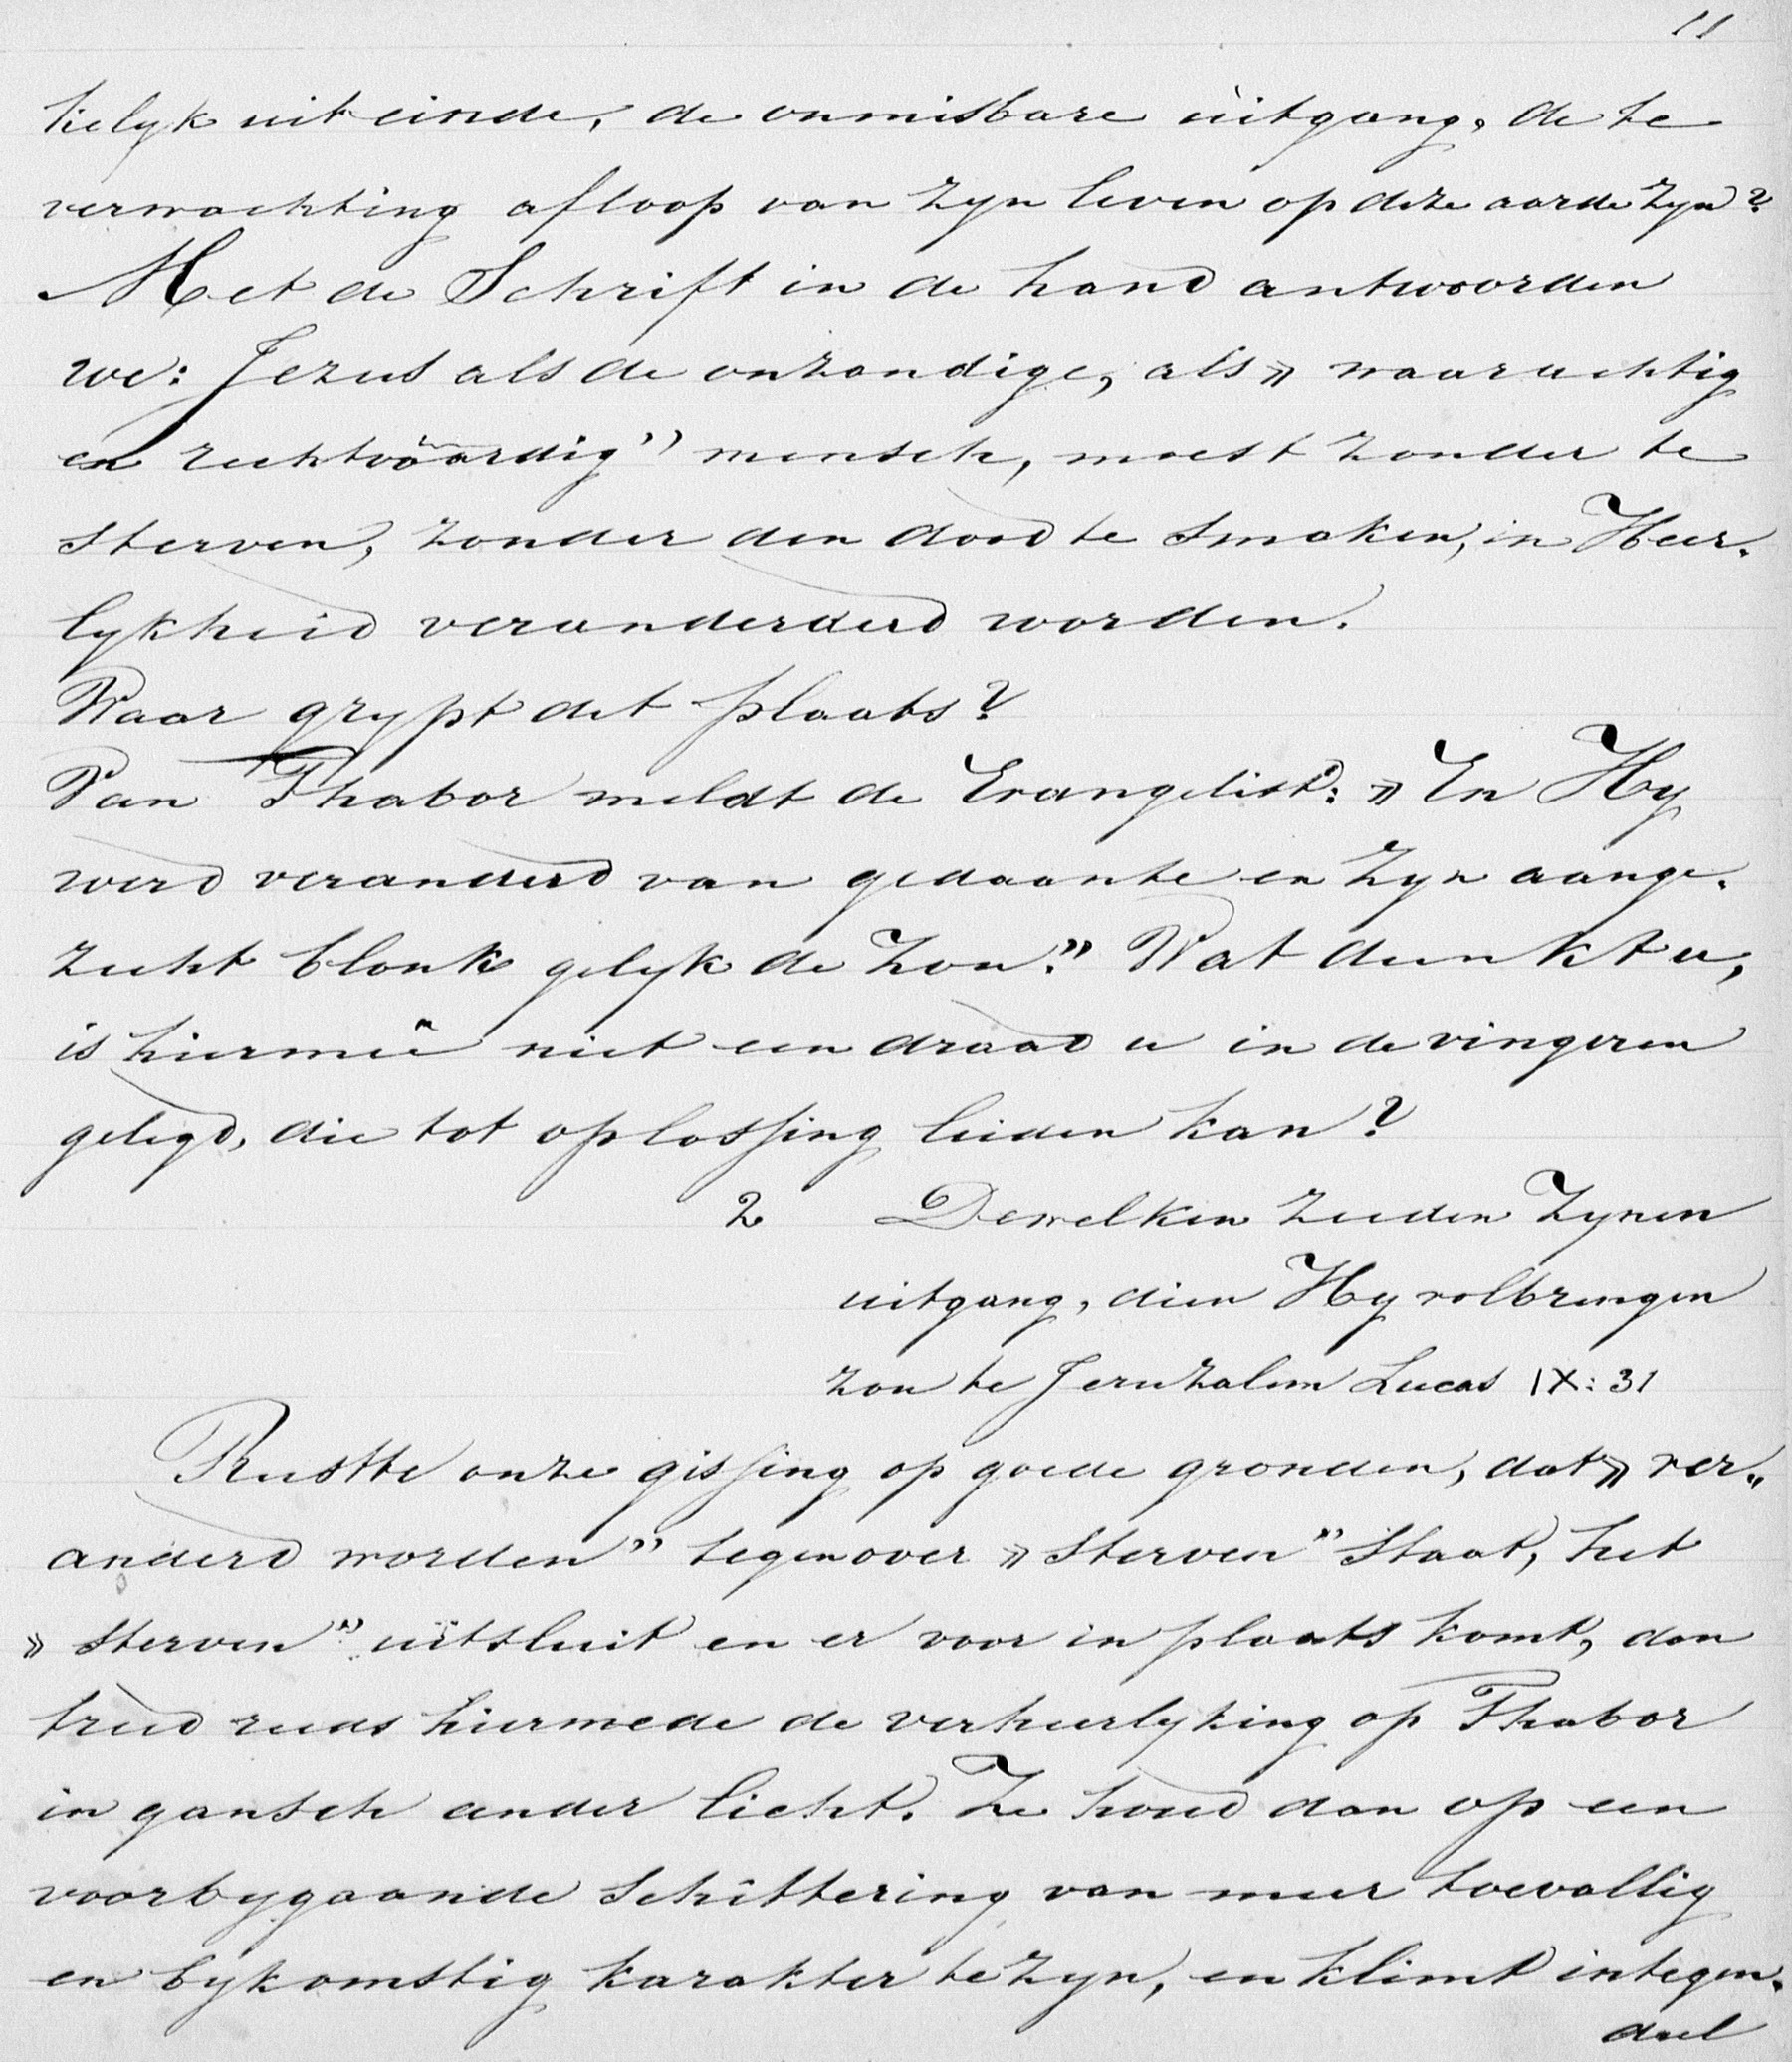 11
kelyk uiteinde, de onmisbare uitgang, de te
verwachting afloop van zyn leven op deze aarde zyn?
Met de Schrift in de hand antwoorden
we: Jezus als de onzondige, als » waarachtig
en rechtvaardig" mensch, moest zonder te
sterven, zonder den dood te smaken, in Heer-
lykheid veranderderd worden.
Waar grypt dit plaats?
Van Thabor meldt de Evangelist: » En Hy
werd veranderd van gedaante en Zyn aange-
zicht blonk gelyk de Zon." Wat dunkt u,
is hiermeê niet een draad u in de vingeren
gelegd, die tot oplossing leiden kan?
2 Dewelken zeiden Zynen
uitgang, dien Hy volbrengen
zou te Jeruzalem Lucas IX: 31
Rustte onze gissing op goede gronden, dat » ver-
anderd worden" tegenover » sterven" staat, het
» sterven" uitsluit en er voor in plaats komt, dan
treed reeds hiermede de verheerlyking op Thabor
in gansch ander licht. Ze houd dan op een
voorbygaande schittering van meer toevallig
en bykomstig karakter te zyn, en klimt integen-
deel